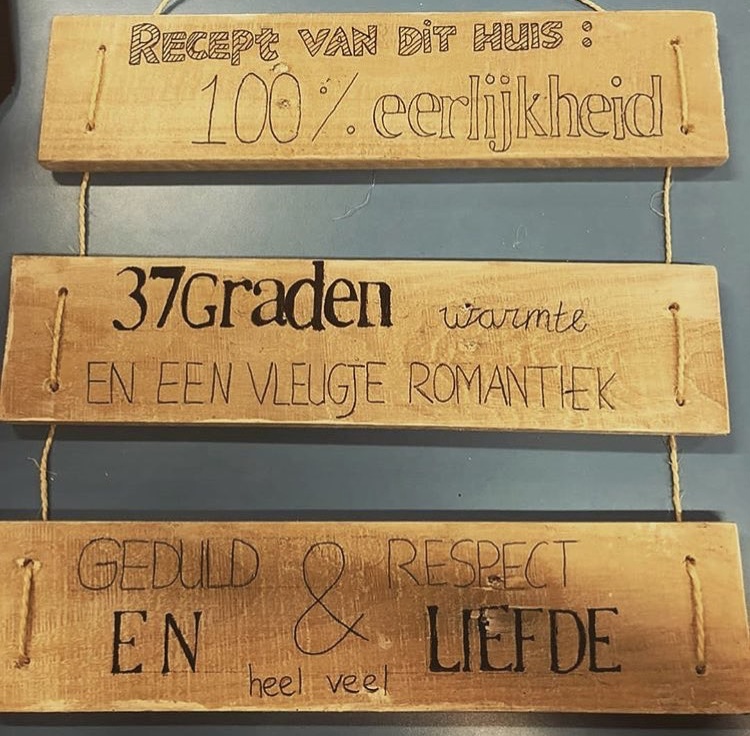 RECEPt VAN DiT HUIS :
100% eerlijkheid
37Graden warmte
EN EEN VLEUGJE ROMANTIEK
GEDULD & RESPECT
EN LIEFDE
heel veel